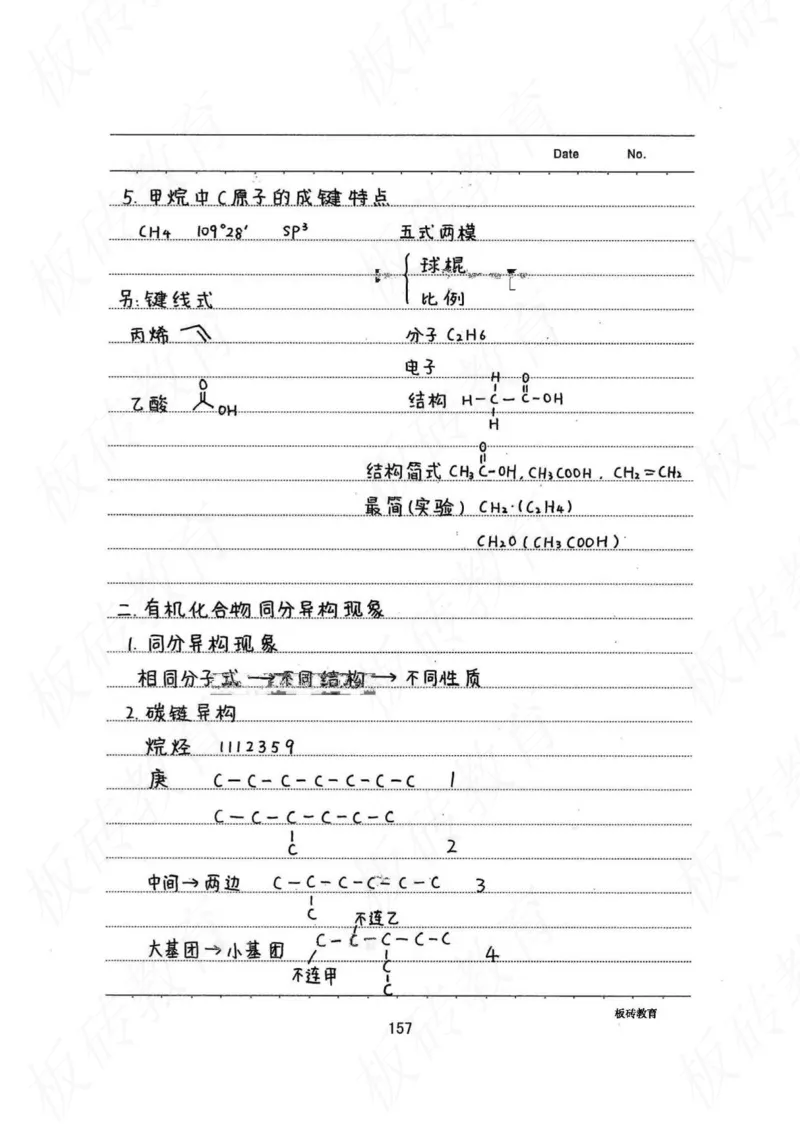 Date No.
5. 甲烷中C原子的成键特点
CH4 109°28′ SP³ 五式两模
球棍
另:键线式 比例
丙烯 分子 C2H6
电子
H O
乙酸 O OH 结构 H-C-C-OH
H
O
结构简式 CH3C-OH, CH3COOH, CH2=CH2
最简(实验) CH2·(C2H4)
CH2O(CH3COOH)
二.有机化合物同分异构现象
1. 同分异构现象
相同分子式→不同结构→不同性质
2. 碳链异构
烷烃 1112359
庚 C-C-C-C-C-C-C 1
C-C-C-C-C-C
C 2
中间→两边 C-C-C-C-C-C 3
C 不连乙
大基团→小基团 C-C-C-C-C 4
不连甲 C
C
板砖教育
157